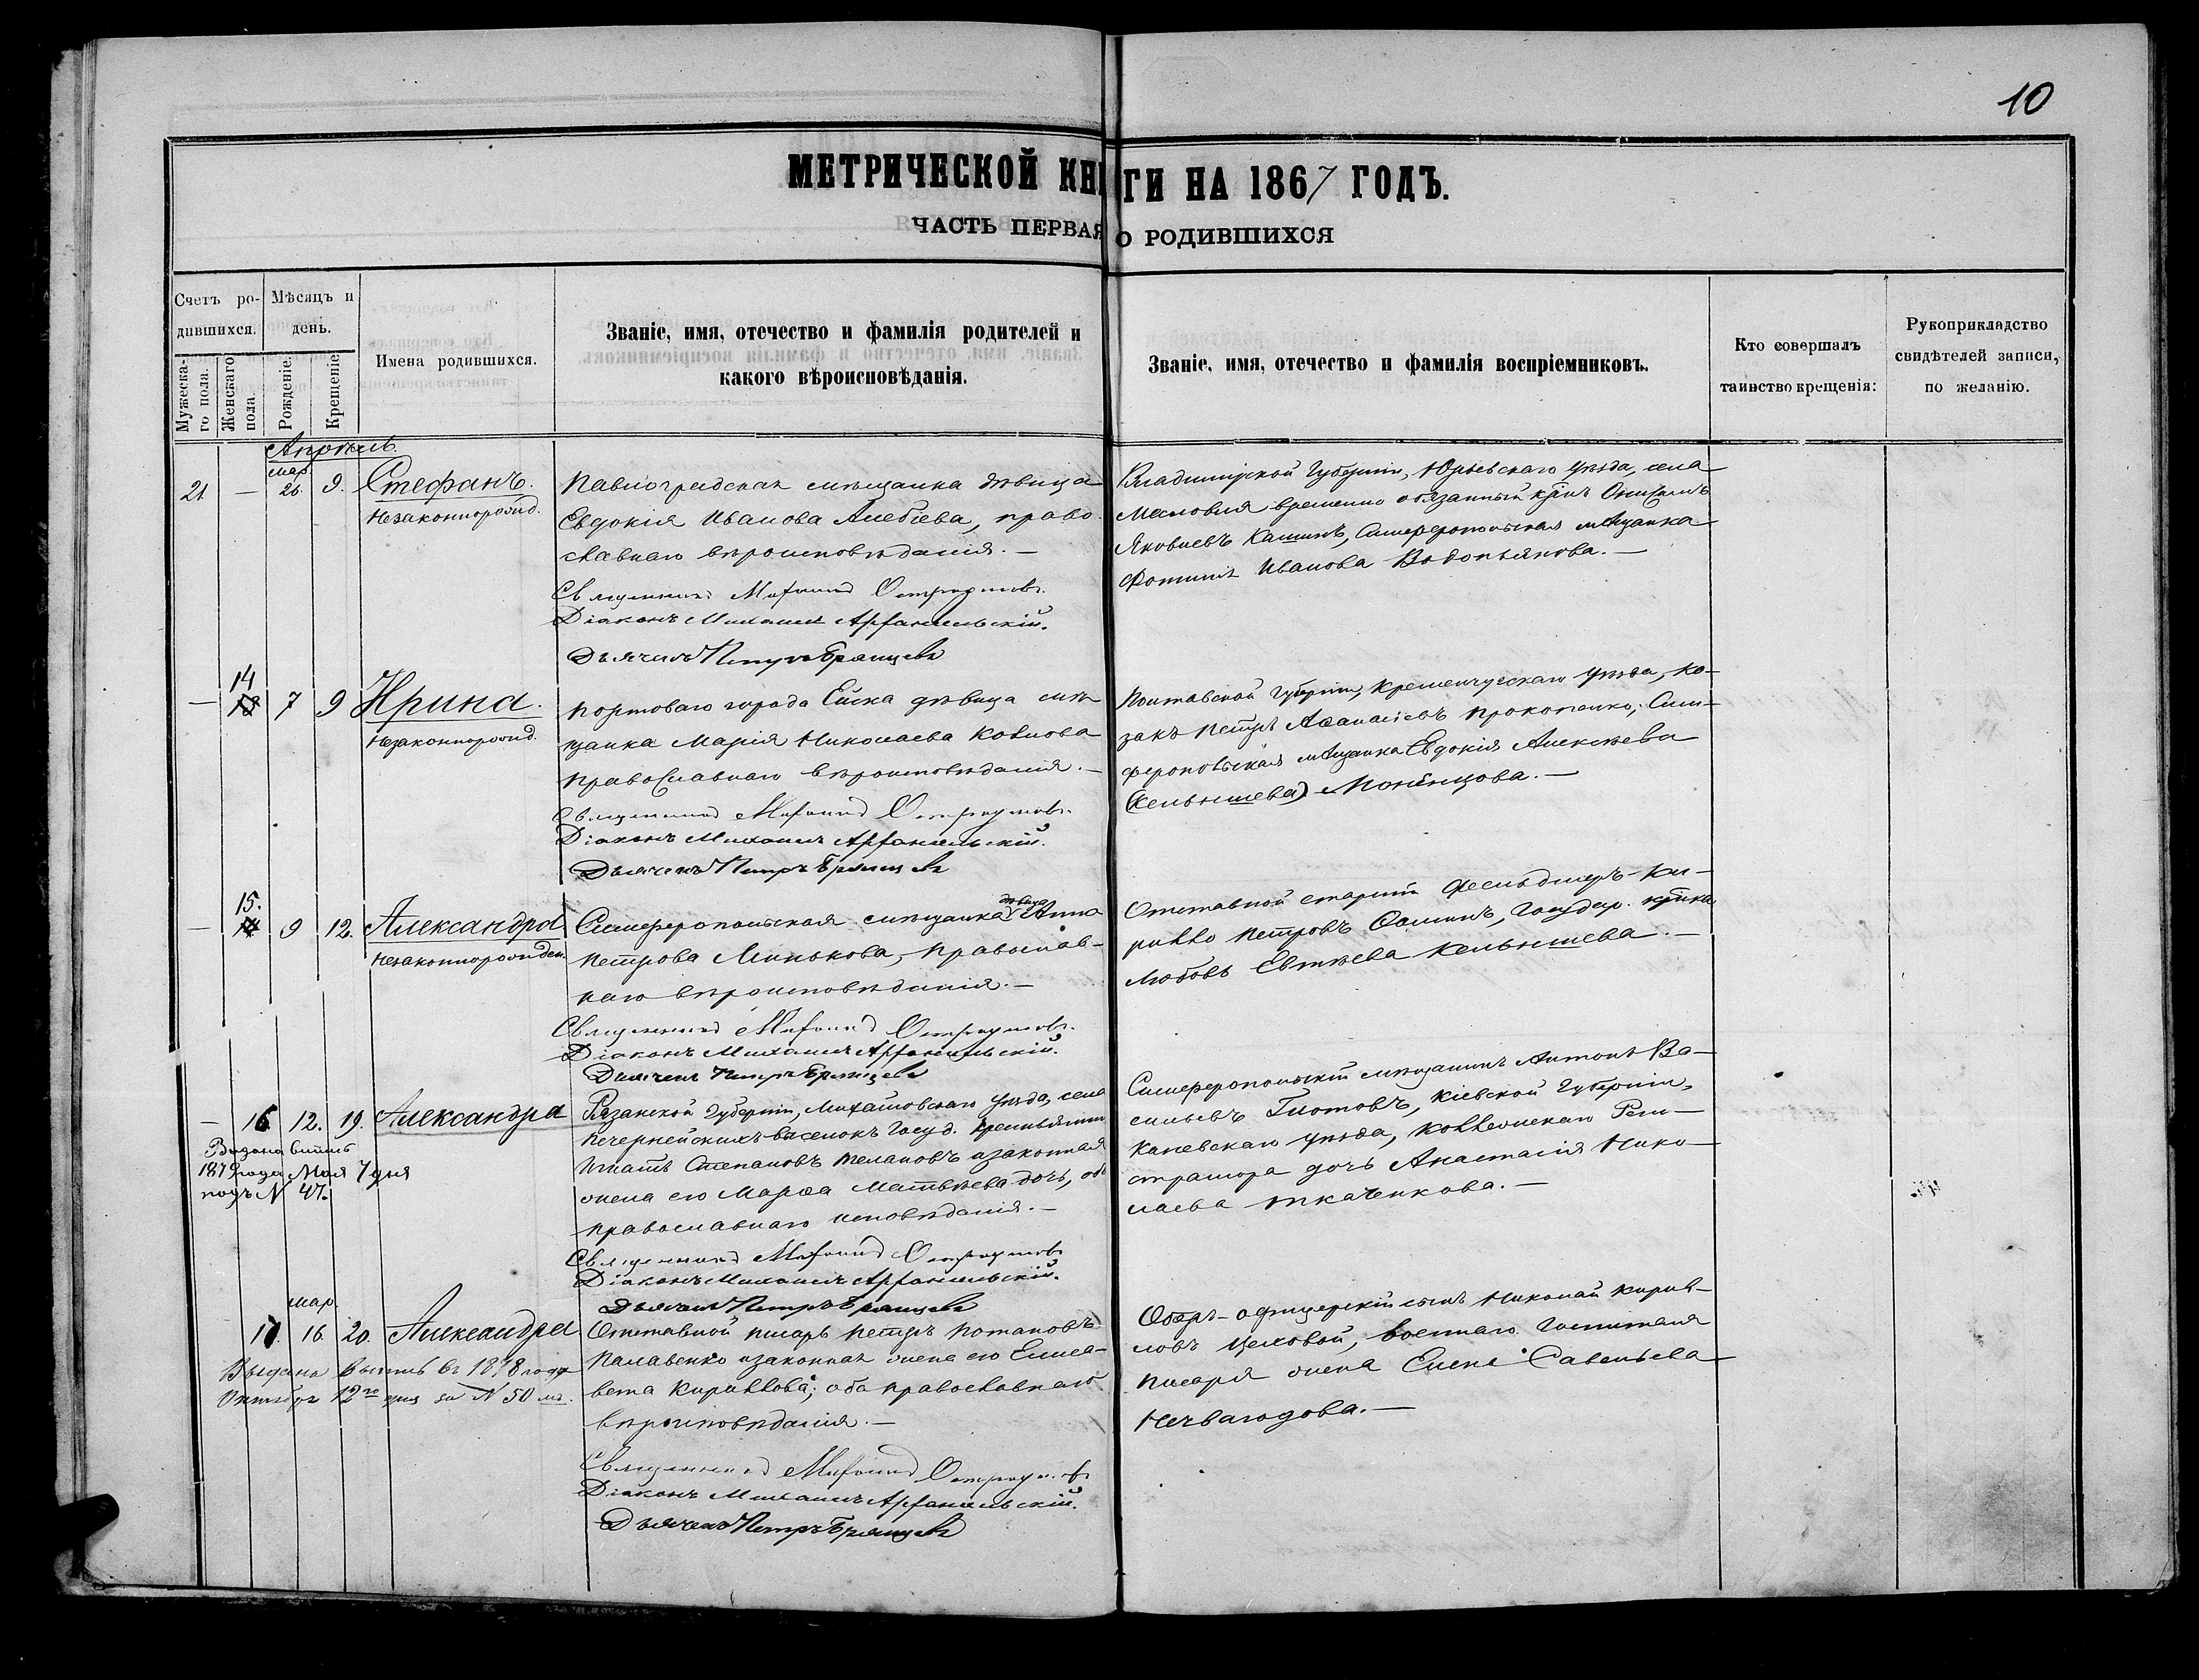 10
МЕТРИЧЕСКОЙ КНИГИ НА 1867 ГОДЪ.
ЧАСТЬ ПЕРВАЯ О РОДИВШИХСЯ
Счетъ ро-
дившихся.
Мѣсяцъ и
день.
Мужеска-
го пола.
Женскаго
пола.
Рожденіе.
Крещеніе.
Имена родившихся.
Званіе, имя, отечество и фамилія родителей и
какого вѣроисповѣданія.
Званіе, имя, отечество и фамилія воспріемниковъ.
Кто совершалъ
таинство крещенія:
Рукоприкладство
свидѣтелей записи,
по желанію.
Апрѣль.
21 — мар. 26. 9. Стефанъ.
Незаконнорожд.
Павлоградская мѣщанка дѣвица
Евдокія Иванова, право
славнаго вѣроисповѣданія. —
Священникъ
Діаконъ Михаилъ Архангельскій.
Дьячекъ Петръ Брянцевъ
Владимірской Губерніи, Юрьевскаго уѣзда, села
временно обязанный Онисимъ
Яковлевъ Кашинъ, Симферопольская мѣщанка
Фотинія Иванова Водопьянова. —
— 14 7 9 Ирина.
Незаконнорожд.
Портоваго города Ейска дѣвица мѣ
щанка Марія Николаева Ковлова
православнаго вѣроисповѣданія. —
Священникъ
Діаконъ Михаилъ Архангельскій.
Дьячекъ Петръ Брянцевъ
Полтавской губерніи, Кременчугскаго уѣзда, ко-
закъ Петръ Аѳанасіевъ Прокопенко, Сим-
феропольская мѣщанка Евдокія Алексѣева
(Кельышева)
— 15. 9 12. Александра
Незаконнорожден.
Симферопольская мѣщанка дѣвица Анна
Петрова Минькова, православ-
наго вѣроисповѣданія. —
Священникъ
Діаконъ Михаилъ Архангельскій.
Дьячекъ Петръ Брянцевъ
Отставной старшій Фельдшеръ Ки-
рилло Петровъ Ѳоминъ, Государ.
Любовь Евтѣева Кельышева. —
— 16 12. 19. Александра
1879 года Мая 7 дня
подъ N 47.
Рязанской Губерніи, Михайловскаго уѣзда, села
Печернѣйскихъ-выселокъ Госуд.
Игнатъ Степановъ и законная
жена его Марѳа Матвѣева дочь, оба
православнаго исповѣданія. —
Священникъ
Діаконъ Михаилъ Архангельскій.
Дьячекъ Петръ Брянцевъ
Симферопольскій мѣщанинъ Антонъ Ва-
сильевъ Глотовъ, Кіевской Губерніи,
Каневскаго уѣзда, Коллежскаго Реги-
стратора дочь Анастасія Нико-
лаева Ткаченкова. —
17. мар. 16 20. Александра
Выдана выпись въ 1878 году
Октября 12го дня за N 50 мъ.
Отставной писарь Петръ Потаповъ
Палавенко и законная жена его Елиса-
вета Кириллова; оба православнаго
вѣроисповѣданія. —
Священникъ
Діаконъ Михаилъ Архангельскій.
Дьячекъ Петръ Брянцевъ
Оберъ-офицерскій сынъ Николай Кирил-
ловъ Цеховой, военнаго Госпиталя
писаря жена Елена Савельева
Нечваюдова. —